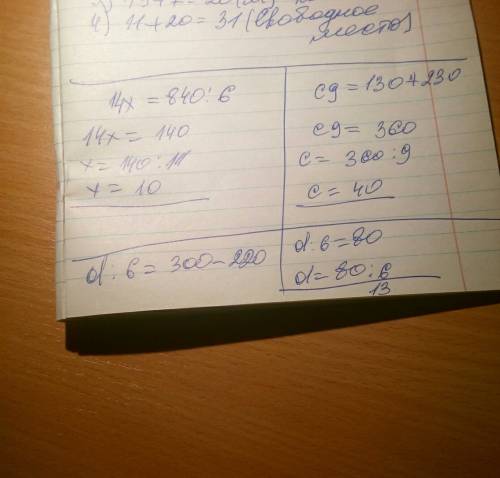 4) 11+20=31 (Свободное
место)
14x = 840:6
14x = 140
x = 140:14
x = 10
c9 = 130+230
c9 = 360
c = 360:9
c = 40
d:6 = 300-220
d:6=80
d=80:6
13